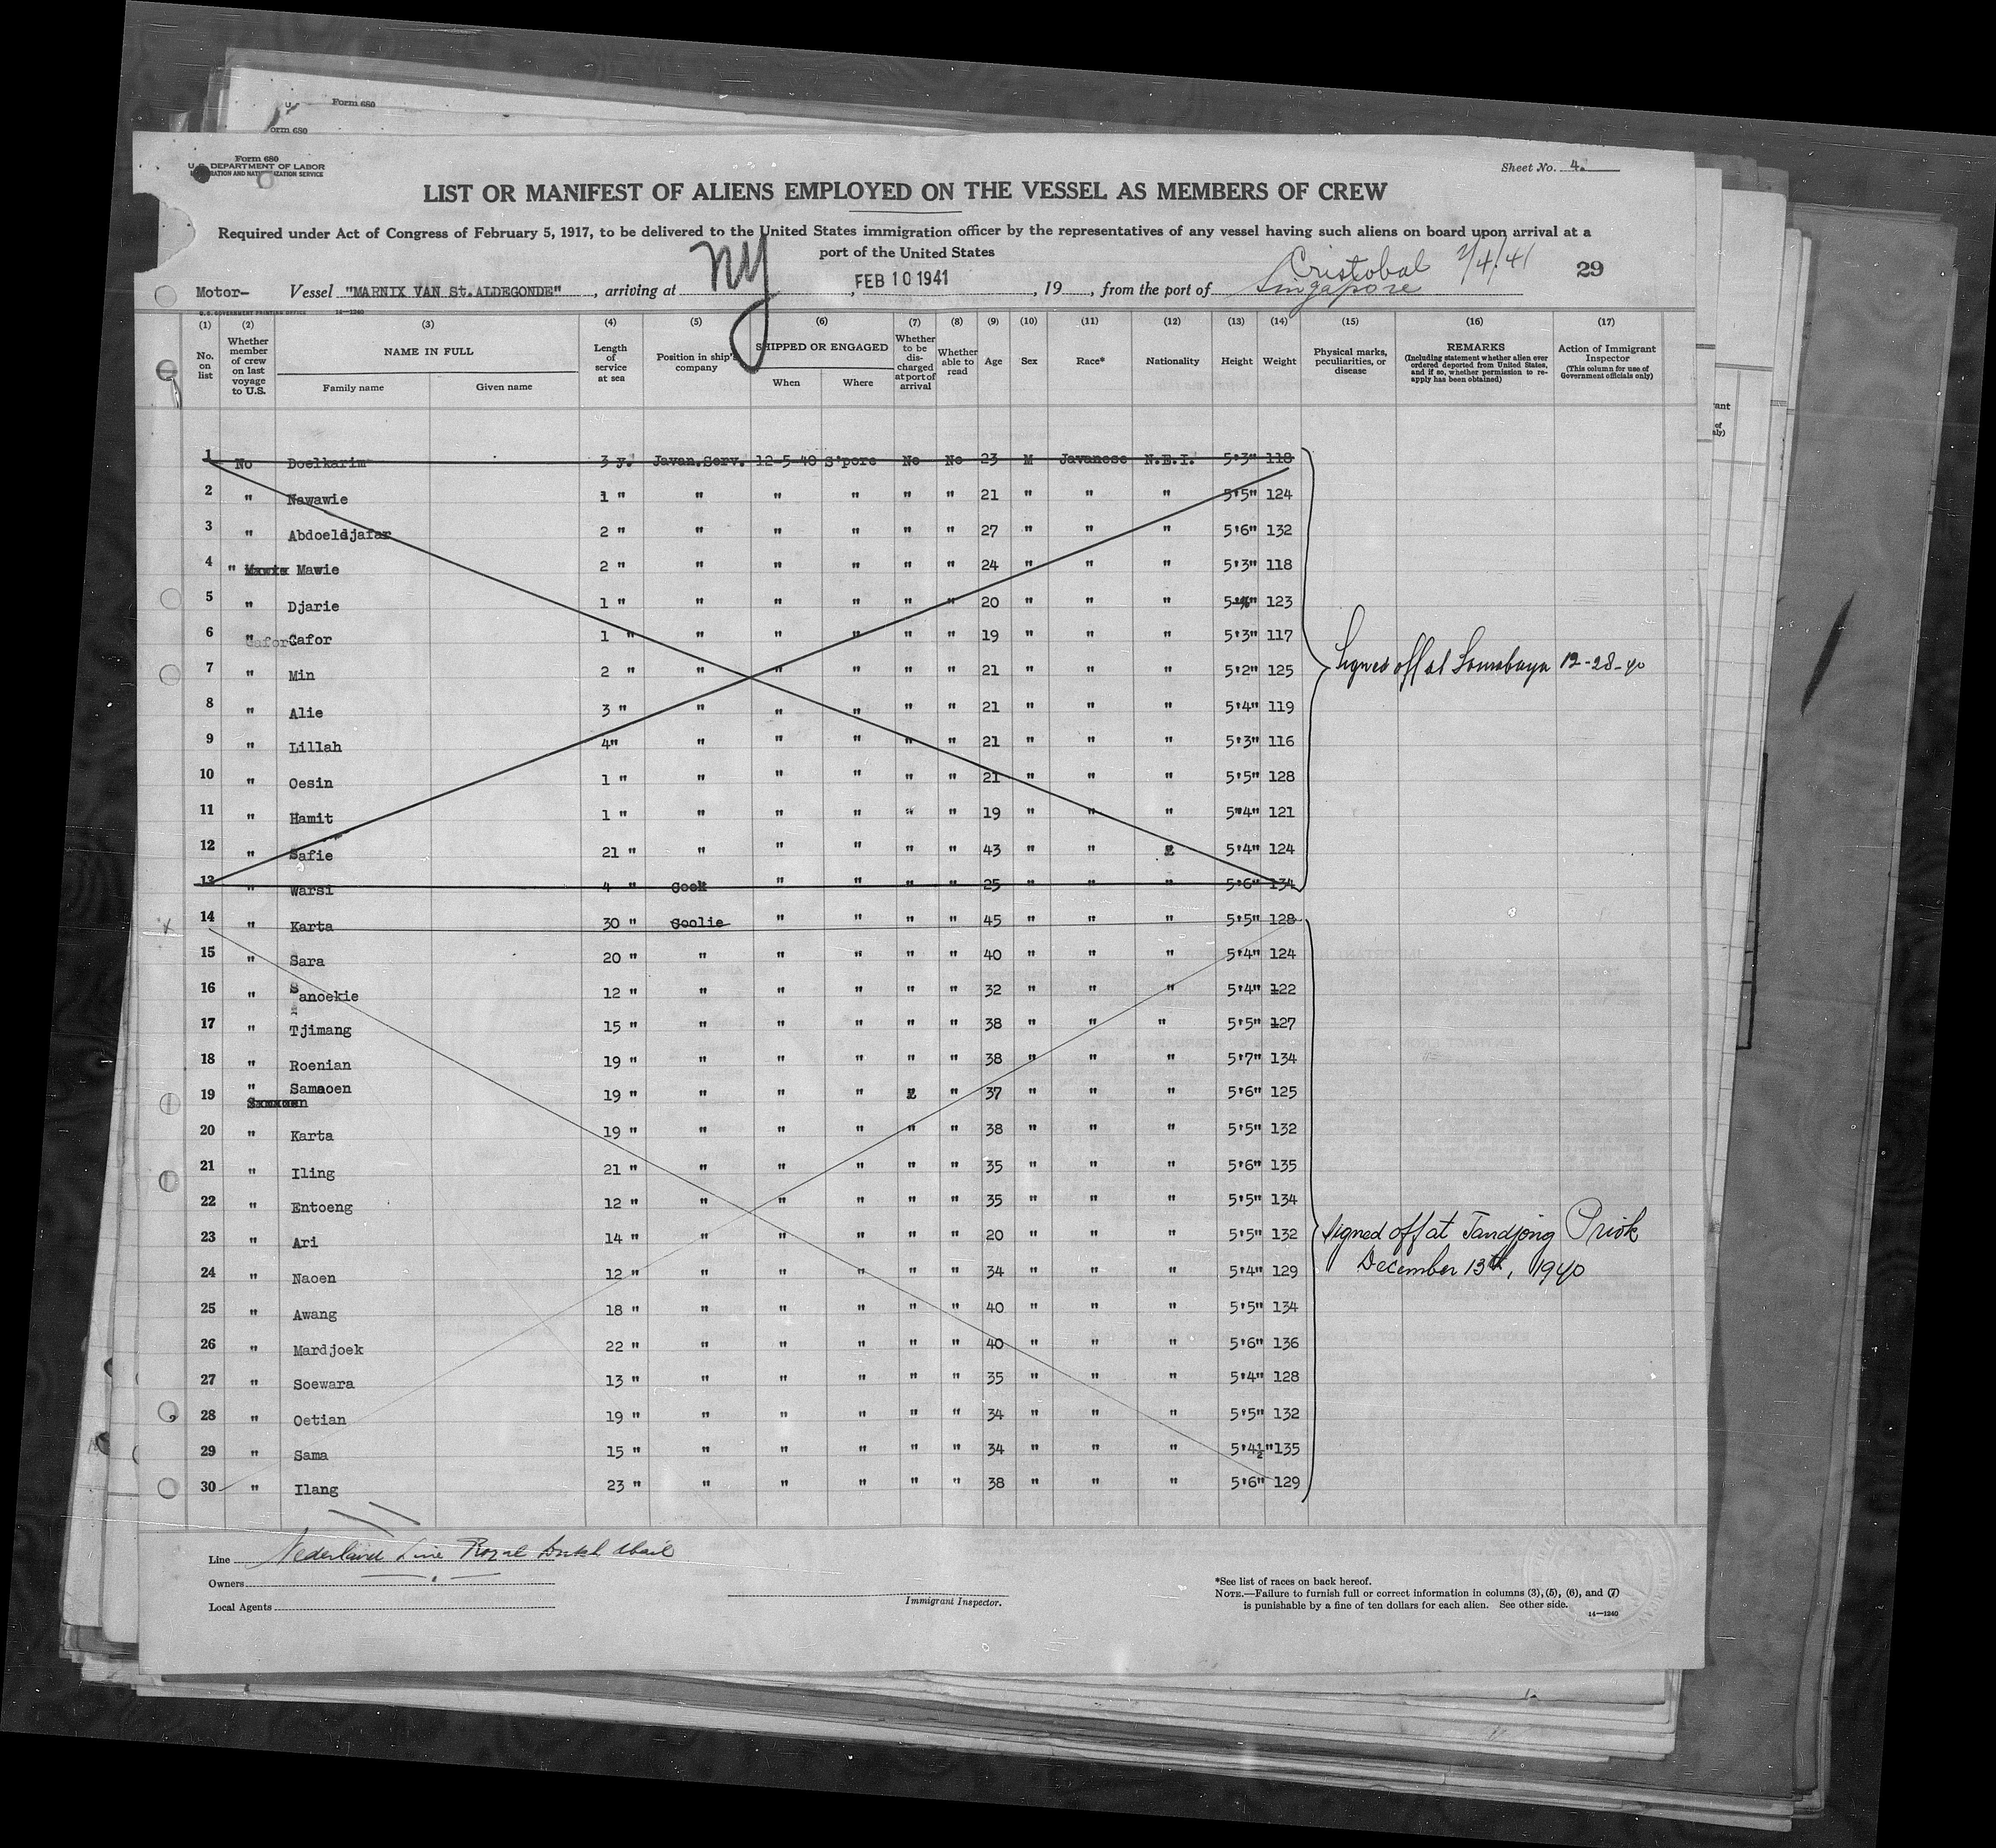 U. Form 680
orm 680
Form 680
U. S. DEPARTMENT OF LABOR
IMMIGRATION AND NATURALIZATION SERVICE
Sheet No. 4.
LIST OR MANIFEST OF ALIENS EMPLOYED ON THE VESSEL AS MEMBERS OF CREW
Required under Act of Congress of February 5, 1917, to be delivered to the United States immigration officer by the representatives of any vessel having such aliens on board upon arrival at a
port of the United States
Cristobal 2/4/41
29
Motor- Vessel "MARNIX VAN St.ALDEGONDE", arriving at NY, FEB 10 1941, 19, from the port of Singapore
U.S. GOVERNMENT PRINTING OFFICE 14—1240
(1) (2) (3) (4) (5) (6) (7) (8) (9) (10) (11) (12) (13) (14) (15) (16) (17)
No. on list
Whether member of crew on last voyage to U.S.
NAME IN FULL
Family name
Given name
Length of service at sea
Position in ship's company
SHIPPED OR ENGAGED
When
Where
Whether to be discharged at port of arrival
Whether able to read
Age
Sex
Race*
Nationality
Height
Weight
Physical marks, peculiarities, or disease
REMARKS
(Including statement whether alien ever ordered deported from United States, and if so, whether permission to reapply has been obtained)
Action of Immigrant Inspector
(This column for use of Government officials only)
1 No Doelkarim 3 y. Javan.Serv. 12-5-40 S'pore No No 23 M Javanese N.E.I. 5'3" 118
2 " Nawawie 1 " " " " " " 21 " " " 5'5" 124
3 " Abdoeldjafar 2 " " " " " " 27 " " " 5'6" 132
4 " Mawie 2 " " " " " " 24 " " " 5'3" 118
5 " Djarie 1 " " " " " " 20 " " " 5'4" 123
6 " Gafor 1 " " " " " " 19 " " " 5'3" 117
7 " Min 2 " " " " " " 21 " " " 5'2" 125
Signed off at Sourabaya 12-28-40
8 " Alie 3 " " " " " " 21 " " " 5'4" 119
9 " Lillah 4" " " " " " 21 " " " 5'3" 116
10 " Oesin 1 " " " " " " 21 " " " 5'5" 128
11 " Hamit 1 " " " " " " 19 " " " 5"4" 121
12 " Safie 21 " " " " " " 43 " " " 5'4" 124
13 " Warsi 4 " Cook " " " " 25 " " " 5'6" 134
14 " Karta 30 " Coolie " " " " 45 " " " 5'5" 128
15 " Sara 20 " " " " " " 40 " " " 5'4" 124
16 " Sanoekie 12 " " " " " " 32 " " " 5'4" 122
17 " Tjimang 15 " " " " " " 38 " " " 5'5" 127
18 " Roenian 19 " " " " " " 38 " " " 5'7" 134
19 " Samaoen 19 " " " " " " 37 " " " 5'6" 125
20 " Karta 19 " " " " " " 38 " " " 5'5" 132
21 " Iling 21 " " " " " " 35 " " " 5'6" 135
22 " Entoeng 12 " " " " " " 35 " " " 5'5" 134
23 " Ari 14 " " " " " " 20 " " " 5'5" 132
Signed off at Tandjong Priok
December 13th, 1940
24 " Naoen 12 " " " " " " 34 " " " 5'4" 129
25 " Awang 18 " " " " " " 40 " " " 5'5" 134
26 " Mardjoek 22 " " " " " " 40 " " " 5'6" 136
27 " Soewara 13 " " " " " " 35 " " " 5'4" 128
28 " Oetian 19 " " " " " " 34 " " " 5'5" 132
29 " Sama 15 " " " " " " 34 " " " 5'4½" 135
30 " Ilang 23 " " " " " " 38 " " " 5'6" 129
Line Nederland Line Royal Dutch Mail
Owners
Local Agents
Immigrant Inspector.
*See list of races on back hereof.
NOTE.—Failure to furnish full or correct information in columns (3), (5), (6), and (7)
is punishable by a fine of ten dollars for each alien. See other side.
14—1240